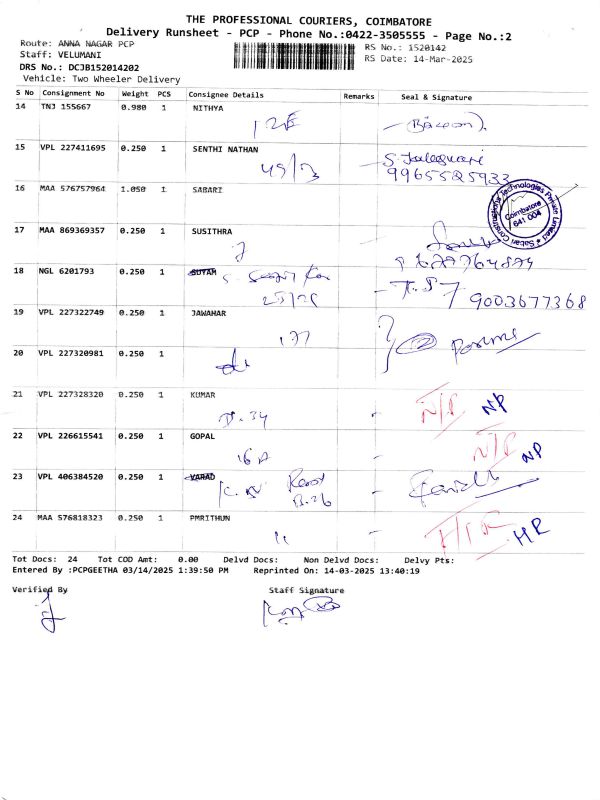 THE PROFESSIONAL COURIERS, COIMBATORE
Delivery Runsheet - PCP - Phone No.:0422-3505555 - Page No.:2
Route: ANNA NAGAR PCP
RS No.: 1520142
Staff: VELUMANI
RS Date: 14-Mar-2025
DRS No.: DCJB152014202
Vehicle: Two Wheeler Delivery
S No Consignment No Weight PCS Consignee Details Remarks Seal & Signature
14 TNJ 155667 0.980 1 NITHYA
12E
15 VPL 227411695 0.250 1 SENTHI NATHAN
49/3
9965525933
16 MAA 576757964 1.050 1 SABARI
Sabari Constructional Technologies Private Limited
Coimbatore
641 004
17 MAA 869369357 0.250 1 SUSITHRA
18 NGL 6201793 0.250 1 SUYAM
25/26
9003677368
19 VPL 227322749 0.250 1 JAWAHAR
177
20 VPL 227320981 0.250 1
21 VPL 227328320 0.250 1 KUMAR
D.34
N/P NP
22 VPL 226615541 0.250 1 GOPAL
16A
N/P NP
23 VPL 406384520 0.250 1 VARAD
B.26
24 MAA 576818323 0.250 1 PMRITHUN
HR
Tot Docs: 24 Tot COD Amt: 0.00 Delvd Docs: Non Delvd Docs: Delvy Pts:
Entered By :PCPGEETHA 03/14/2025 1:39:50 PM Reprinted On: 14-03-2025 13:40:19
Verified By Staff Signature